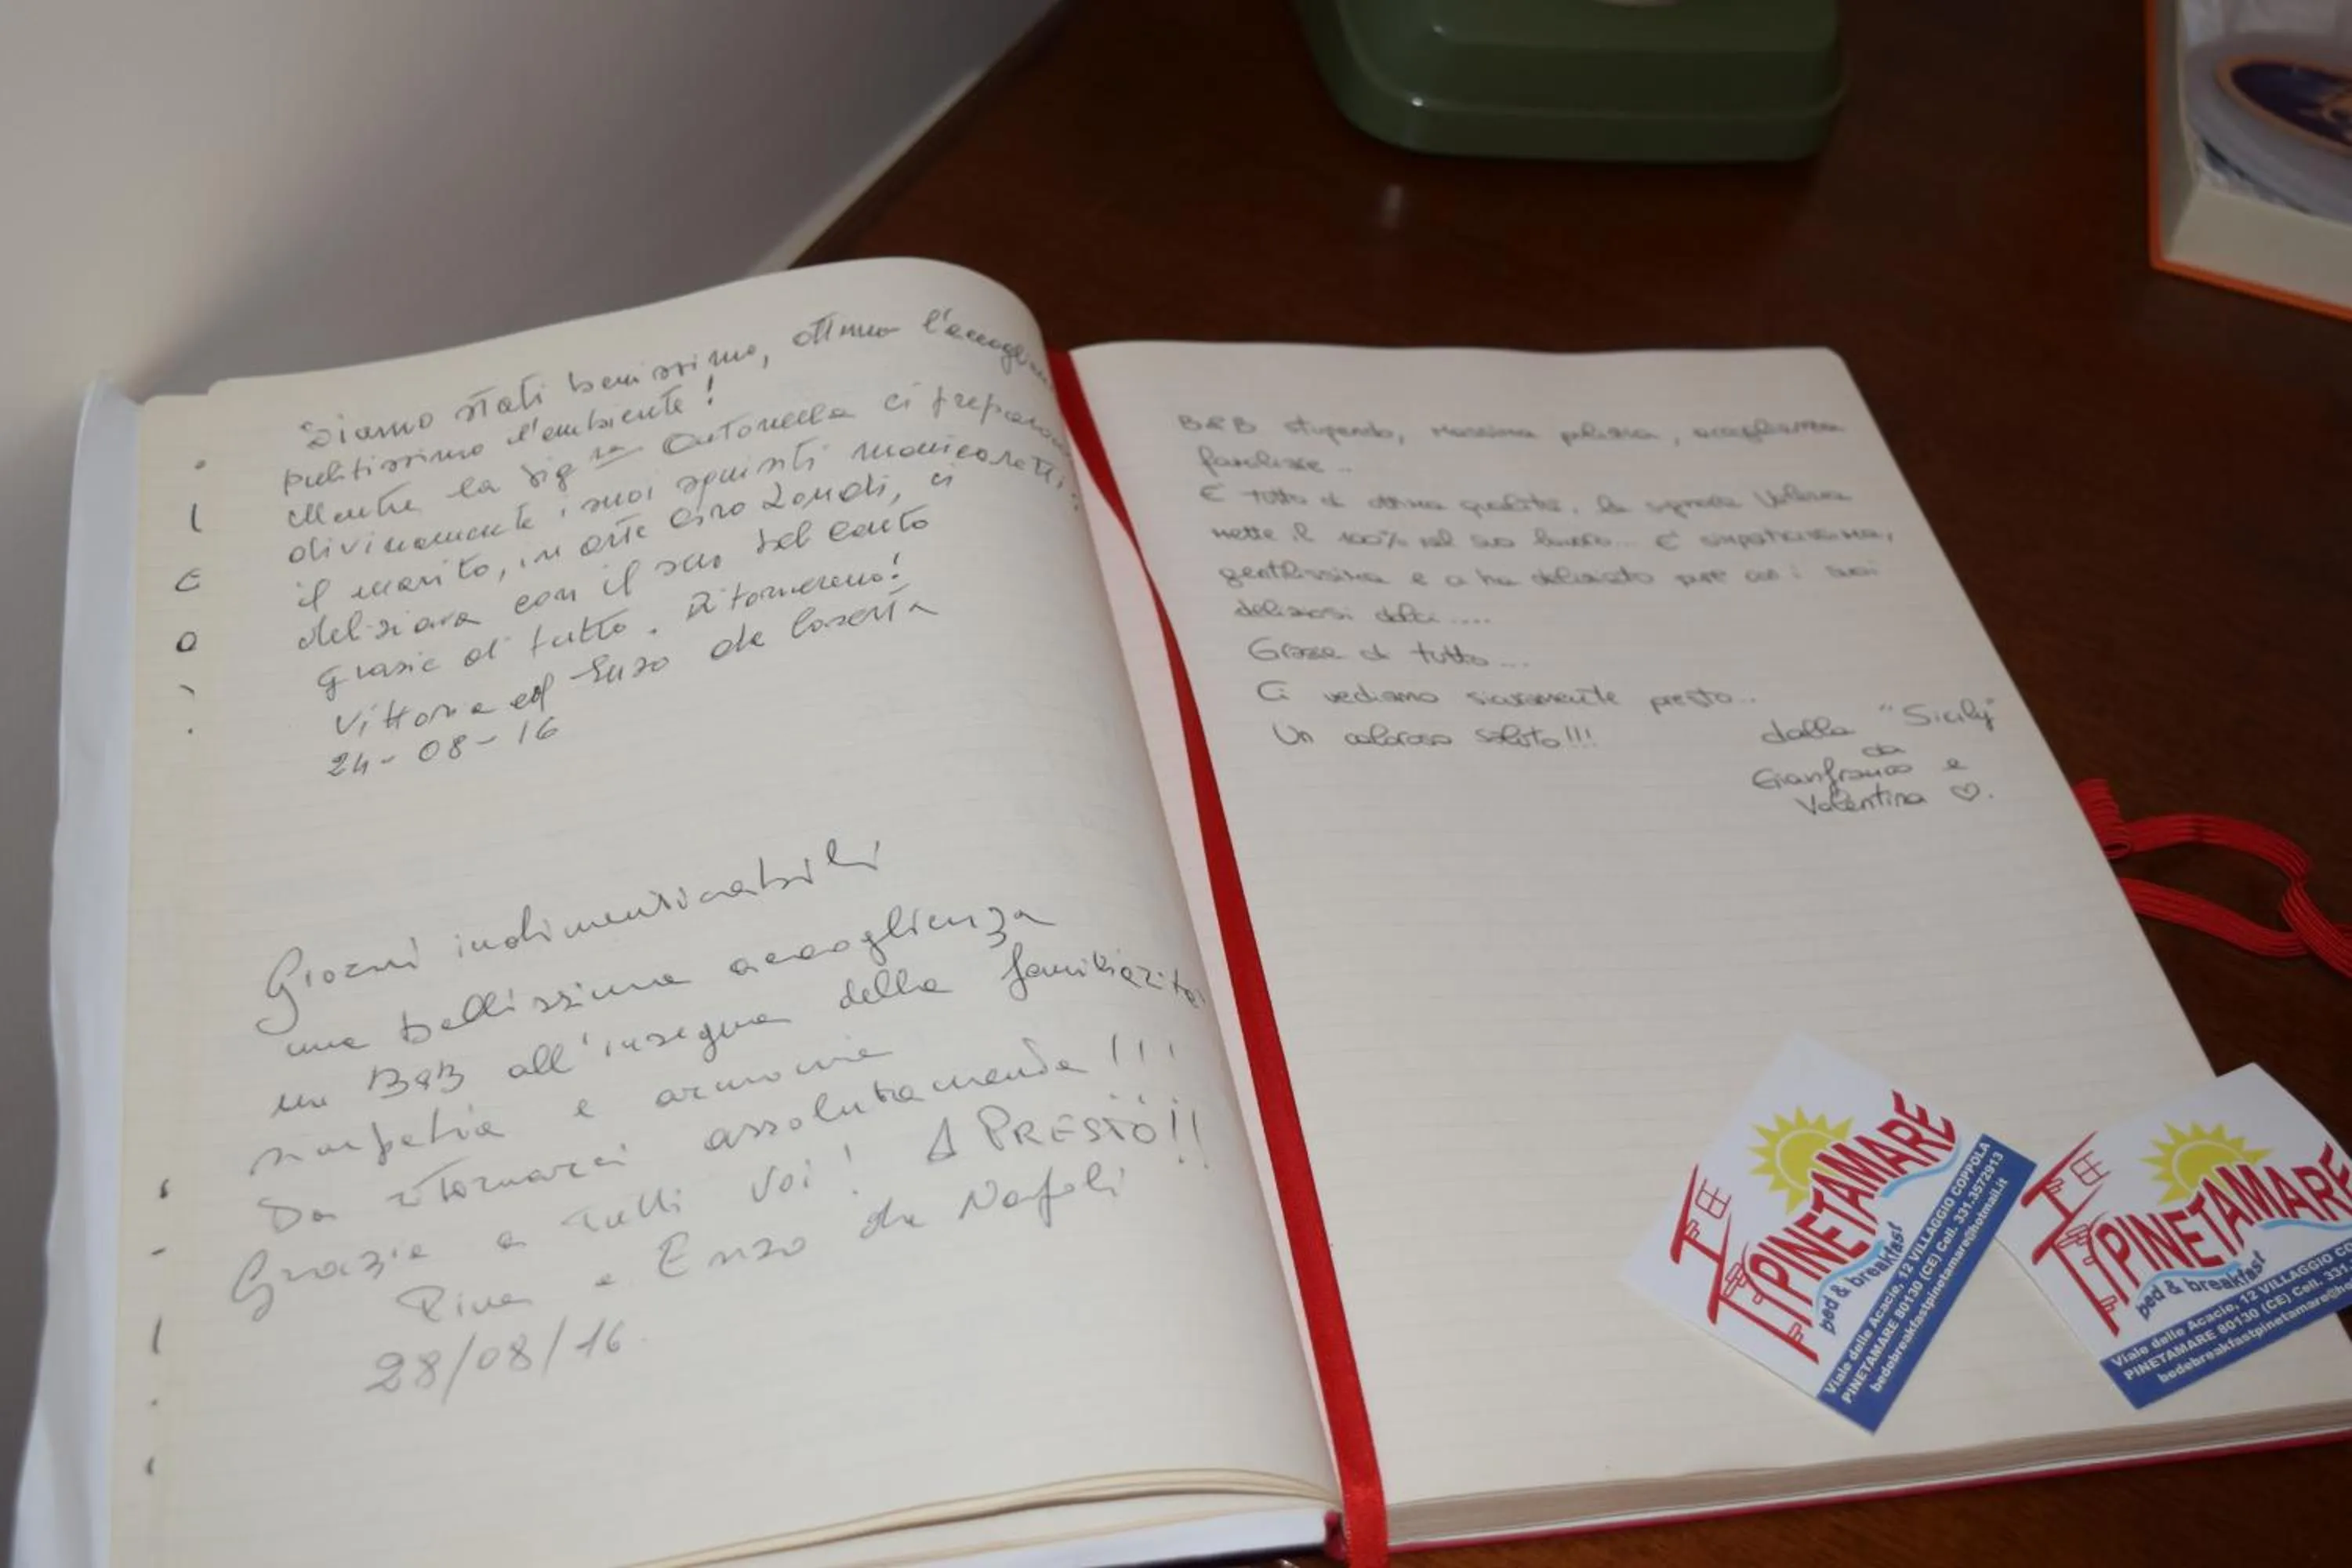 Siamo stati benissimo, ottima l'accoglien
pulitissimo l'ambiente!
Mentre la Sig.ra Antonella ci preparava
divinamente i suoi squisiti manicaretti,
il marito, in arte Ciro Zondi, ci
deliziava con il suo bel canto
Grazie di tutto. Ritorneremo!
Vittoria ed Enzo da Caserta
24-08-16
Giorni indimenticabili
una bellissima accoglienza
un B&B all'insegna della familiarità
simpatia e armonia
Da ritornarci assolutamente!!!
Grazie a tutti voi! A PRESTO!!
Pina e Enzo da Napoli
28/08/16.
B&B stupendo, massima pulizia, accoglienza
favolosa..
E' tutto di ottima qualità, la signora
mette il 100% nel suo lavoro... E' simpaticissima,
gentilissima e ci ha deliziato per con i suoi
deliziosi dolci....
Grazie di tutto...
Ci vediamo sicuramente presto...
Un caloroso saluto!!!
dalla "Sicily"
da
Gianfranco e
Valentina ♡.
PINETAMARE
bed & breakfast
Viale delle Acacie, 12 VILLAGGIO COPPOLA
PINETAMARE 80130 (CE) Cell. 331.3572913
bedebreakfastpinetamare@hotmail.it
PINETAMARE
bed & breakfast
Viale delle Acacie, 12 VILLAGGIO CO
PINETAMARE 80130 (CE) Cell. 331.
bedebreakfastpinetamare@ho